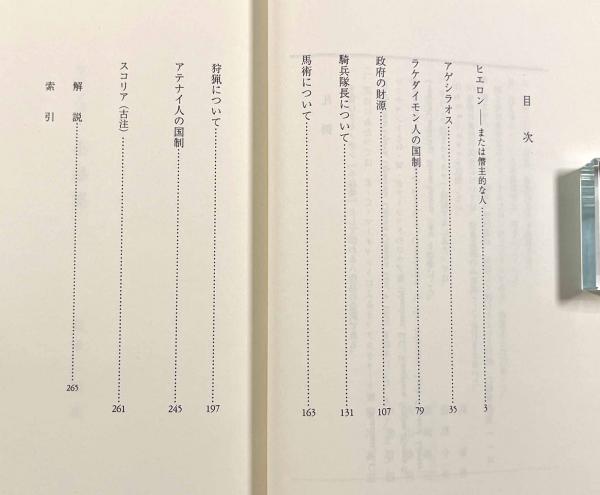 目次
ヒエロン――または僭主的な人……3
アゲシラオス……35
ラケダイモン人の国制……79
政府の財源……107
騎兵隊長について……131
馬術について……163
狩猟について……197
アテナイ人の国制……245
スコリア（古注）……261
解説……265
索引